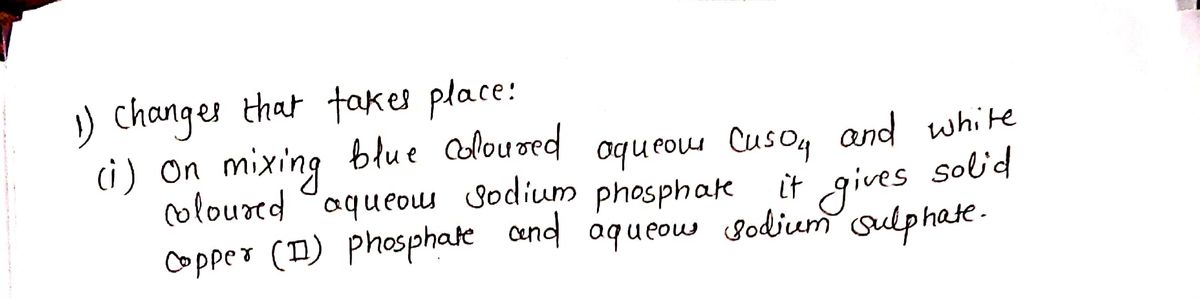 1) Changes that takes place:
(i) On mixing blue coloured aqueous CuSO4 and white
coloured aqueous sodium phosphate it gives solid
Copper (II) phosphate and aqueous sodium sulphate.